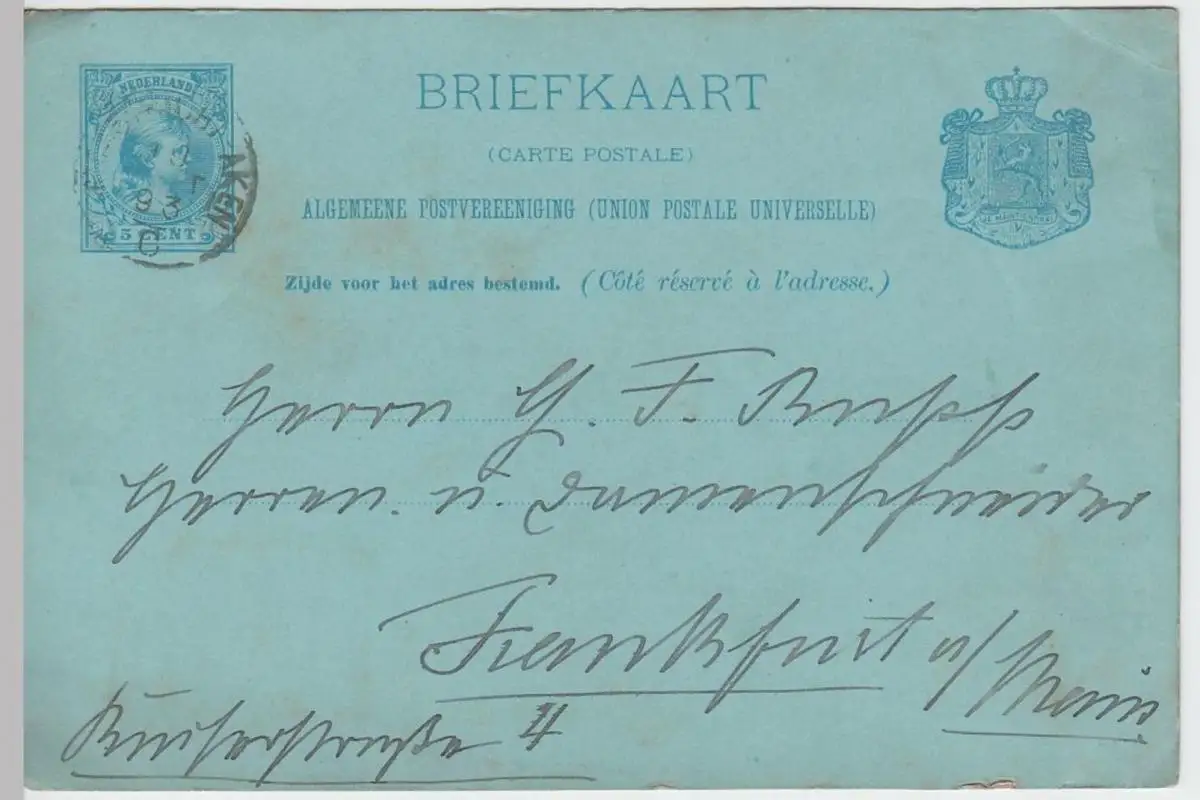 NEDERLAND
5 CENT
AKEN
BRIEFKAART
(CARTE POSTALE)
ALGEMEENE POSTVEREENIGING (UNION POSTALE UNIVERSELLE)
JE MAINTIENDRAI
Zijde voor het adres bestemd. (Côté réservé à l'adresse.)
Herrn G. F. Rupp
Herren u. Damenschneider
Frankfurt a/Main
Kaiserstraße